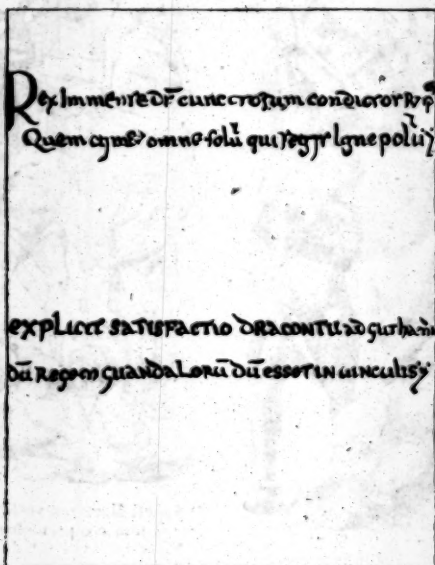 Rex Immense ds̄ cunctorum conditor
Quem timet omne solū qui regit Igne polū
explicit satisfactio dracontii ad guthamū
dū regem guandalorū dū esset in uinculis